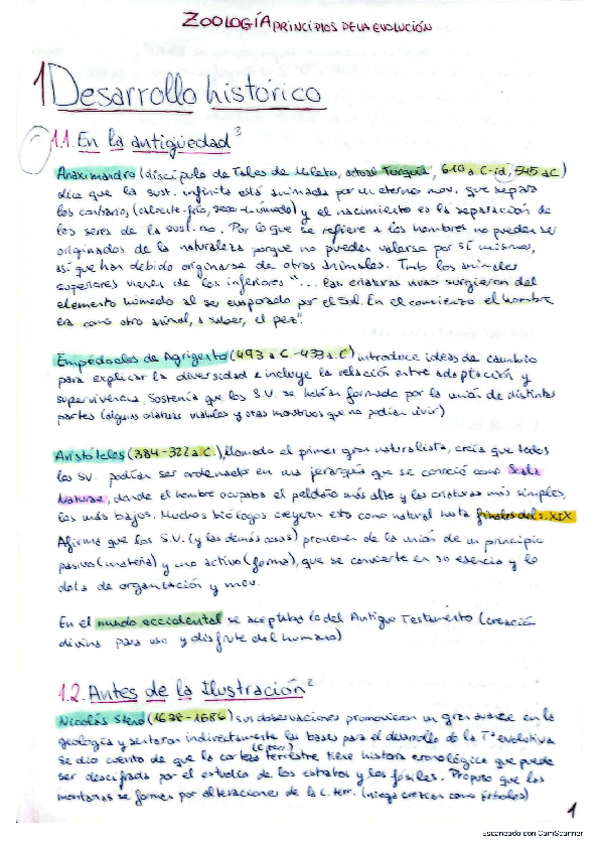 ZOOLOGÍA PRINCIPIOS DE LA EVOLUCIÓN
1 Desarrollo histórico
1.1. En la antigüedad 3
Anaximandro (discípulo de Tales de Mileto, actual Turquía, 610 a.C-id, 545 aC)
dice que la sust. infinita está animada por un eterno mov. que separa
los contrarios, (caliente-frío, seco-húmedo) y el nacimiento es la separación de
los seres de la sust. no. Por lo que se refiere a los hombres no pueden ser
originados de la naturaleza porque no pueden valerse por sí mismos,
así que han debido originarse de otros animales. Tmb los animales
superiores vienen de los inferiores "... las criaturas vivas surgieron del
elemento húmedo al ser evaporado por el Sol. En el comienzo el hombre
era como otro animal, a saber, el pez".
Empédocles de Agrigento (493 a C.-433 a.C) introduce ideas de cambio
para explicar la diversidad e incluye la relación entre adaptación y
supervivencia. Sostenía que los S.V. se habían formado por la unión de distintas
partes (algunas criaturas viables y otras monstruos que no podían vivir)
Aristóteles (384-322 a C.), llamado el primer gran naturalista, creía que todos
los SV. podían ser ordenado en una jerarquía que se conoció como Scala
Naturae, donde el hombre ocupaba el peldaño más alto y las criaturas más simples,
los más bajos. Muchos biólogos creyeron esto como natural hasta finales del s. XIX
Afirma que los S.V. (y las demás cosas) provienen de la unión de un principio
pasivo (materia) y uno activo (forma), que se convierte en su esencia y lo
dota de organización y mov.
En el mundo occidental se aceptaba lo del Antiguo Testamento (creación
divina para uso y disfrute del humano)
1.2. Antes de la Ilustración 2
Nicolás Steno (1638-1686) sus observaciones promovieron un gran avance en la
geología y sentaron indirectamente las bases para el desarrollo de la Tª evolutiva
Se dio cuento de que la corteza terrestre (c.terr.) tiene historia cronológica que puede
ser descifrada por el estudio de los estratos y los fósiles. Propuso que las
montañas se forman por alteraciones de la c. terr. (niega crezcan como árboles)
1
Escaneado con CamScanner